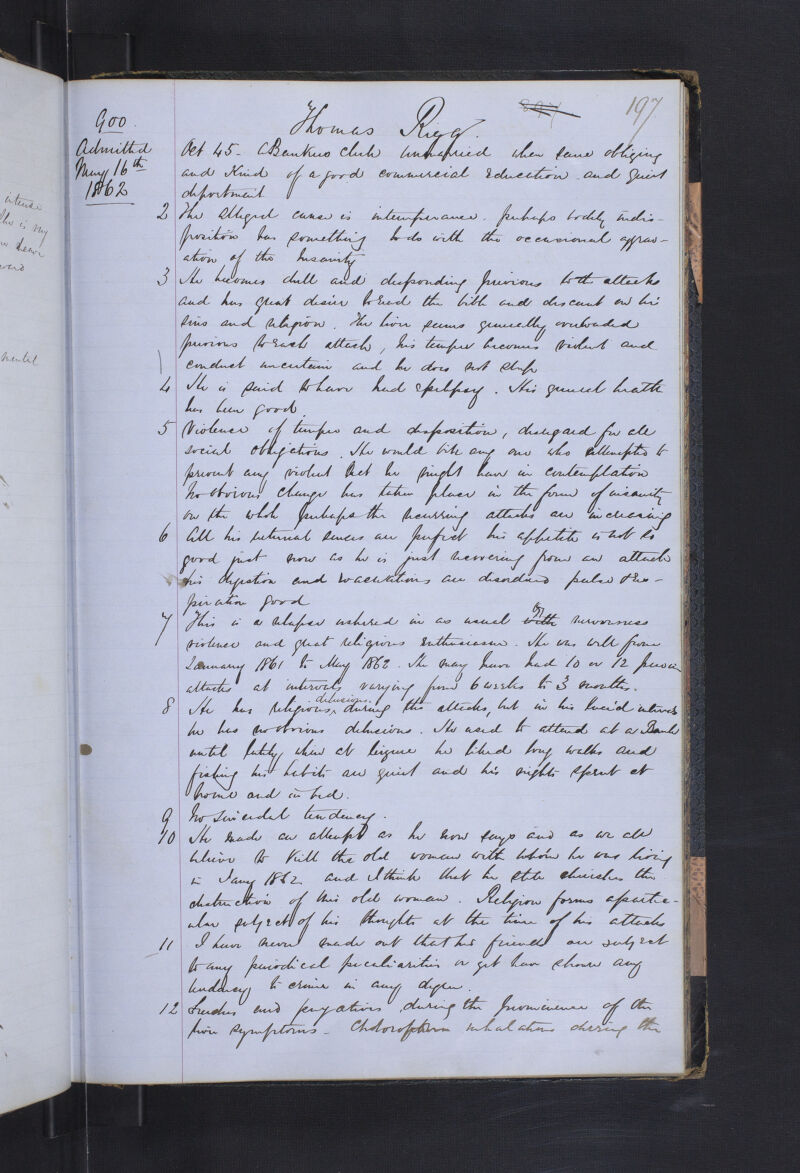 197
Thomas Rigg.
900.
Admitted
May 16th
1862
Aet 45 - A Bankers Clerk unmarried when sane obliging
and kind of a good commercial education and quiet
deportment
2 The alleged cause is intemperance. perhaps bodily indis-
position has something to do with the occasional aggrav-
ation of the Insanity
3 He becomes dull and desponding previous to the attacks
and has great desire to read the bible and descant on his
sins and religion. The liver seems generally overloaded
previous to each attack, his temper becomes violent and
conduct uncertain and he does not sleep
4 He is said to have had Epilepsy. His general health
has been good.
5 Violence of temper and disposition, disregard for all
social obligations. He would bite any one who attempted to
prevent any violent act he might have in contemplation
No obvious change has taken place in the form of insanity
on the whole perhaps the recurring attacks are increasing
6 All his external senses are perfect his appetite is not so
good just now as he is just recovering from an attack
his digestion and evacuations are disordered pulse & res-
piration good
7 This is a relapse ushered in as usual with by nervousness
violence and great religious enthusiasm. He was well from
January 1861 to May 1862. He may have had 10 or 12 previous
attacks at intervals varying from 6 weeks to 3 months.
8 He has religious delusions during the attacks, but in his lucid intervals
he has no obvious delusions. He used to attend at a Bank
until lately when at leisure he liked long walks and
fishing his habits are quiet and his nights spent at
home and in bed.
9 No suicidal tendency.
10 He made an attempt as he now says and as we all
believe to kill the old woman with whom he was living
in Jany 1862 and I think that he still cherishes the
destruction of this old woman. Religion forms a partic-
ular subject of his thoughts at the time of his attacks
11 I have never made out that his friends are subject
to any periodical peculiarities or yet have shown any
tendency to crime in any degree.
12 and purgatives during the prominence of the
liver symptoms - Chloroform inhalations during the